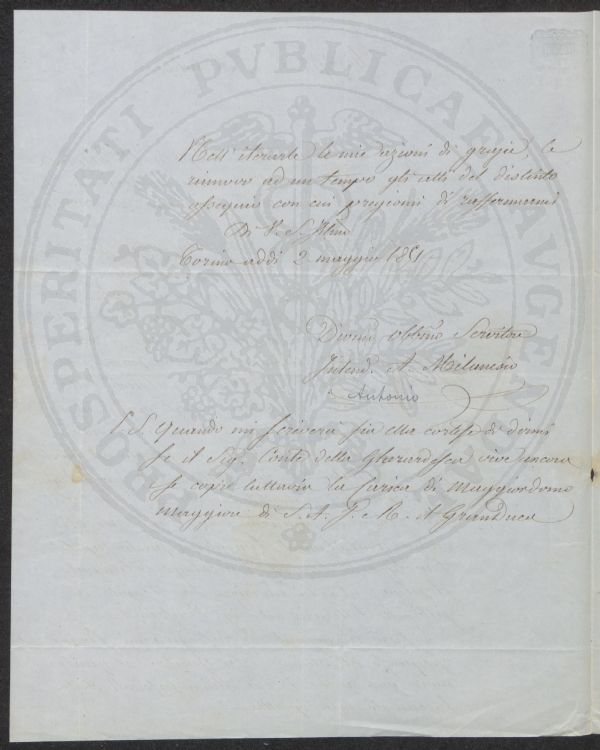 PROSPERITATI PVBLICAE AVGENDAE
Nell' iterarle le mie azioni di grazie, le
rinnovo ad un tempo gli atti del distinto
ossequio con cui pregiomi di raffermarmi
Di V. S. Illma
Torino addì 2 maggio 1851
Devmo Obblmo Servitore
Intend. A. Milanesio
Antonio
P.S. Quando mi scriverà sia ella cortese di dirmi
se il Sig. Conte della Gherardesca vive ancora
e copre tuttavia la carica di Maggiordomo
Maggiore di S. A. I. e R. il Granduca